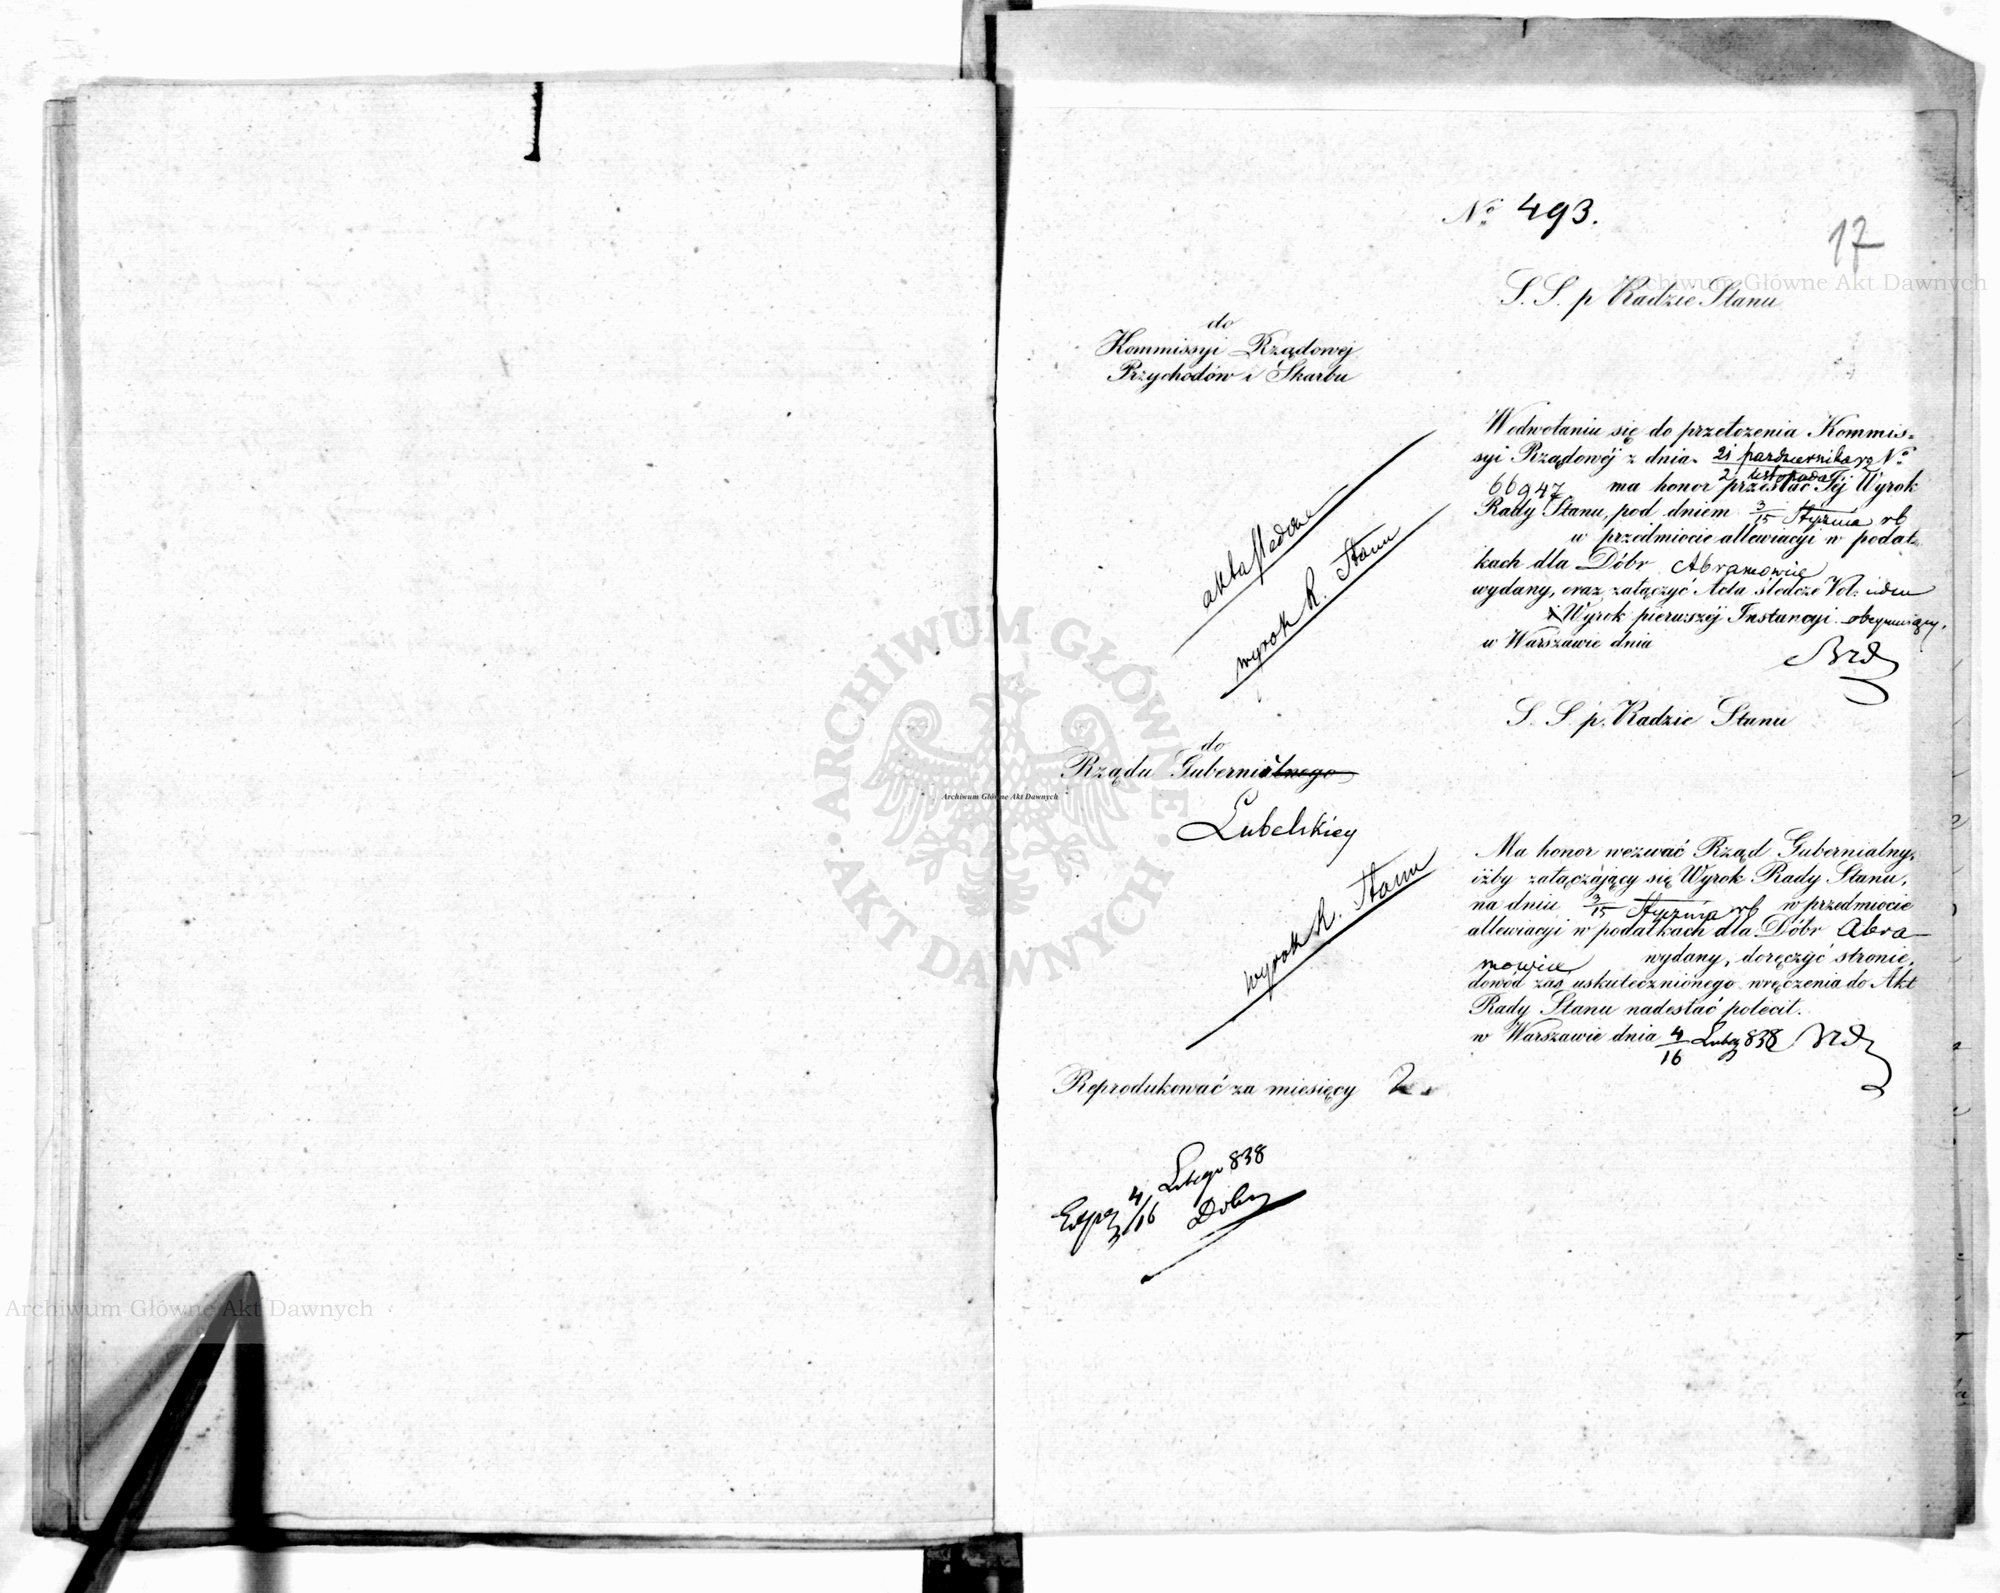 No 493.
17
S. S. p Radzie Stanu
do
Kommissyi Rządowej
Przychodów i Skarbu
W odwołaniu się do przełożenia Kommis=
syi Rządowéj z dnia 21 pazdziernika No
2 Listopada
66947 ma honor przesłać Jéj Wyrok
Rady Stanu, pod dniem 3/15 Stycznia rb
w przedmiocie allewiacyi w podat=
kach dla Dóbr Abramowice
wydany, oraz załączyć Acta śledcze Vol:
i Wyrok pierwszéj Instancyi
w Warszawie dnia
akta śledcze
wyrok R. Stanu
S. S. p. Radzie Stanu
do
Rządu Gubernialnego
Lubelskiey
Ma honor wezwać Rząd Gubernialny,
iżby załączający się Wyrok Rady Stanu,
na dniu 3/15 Stycznia rb w przedmiocie
allewiacyi w podatkach dla Dóbr Abra
mowice wydany, doręczyć stronie,
dowód zaś uskutecznionego wręczenia do Akt
Rady Stanu nadesłać polecił.
w Warszawie dnia 4/16 838
wyrok R. Stanu
Reprodukować za miesięcy 2
4/16 Lutego 838
Archiwum Główne Akt Dawnych
ARCHIWUM GŁÓWNE AKT DAWNYCH
Archiwum Główne Akt Dawnych
Archiwum Główne Akt Dawnych